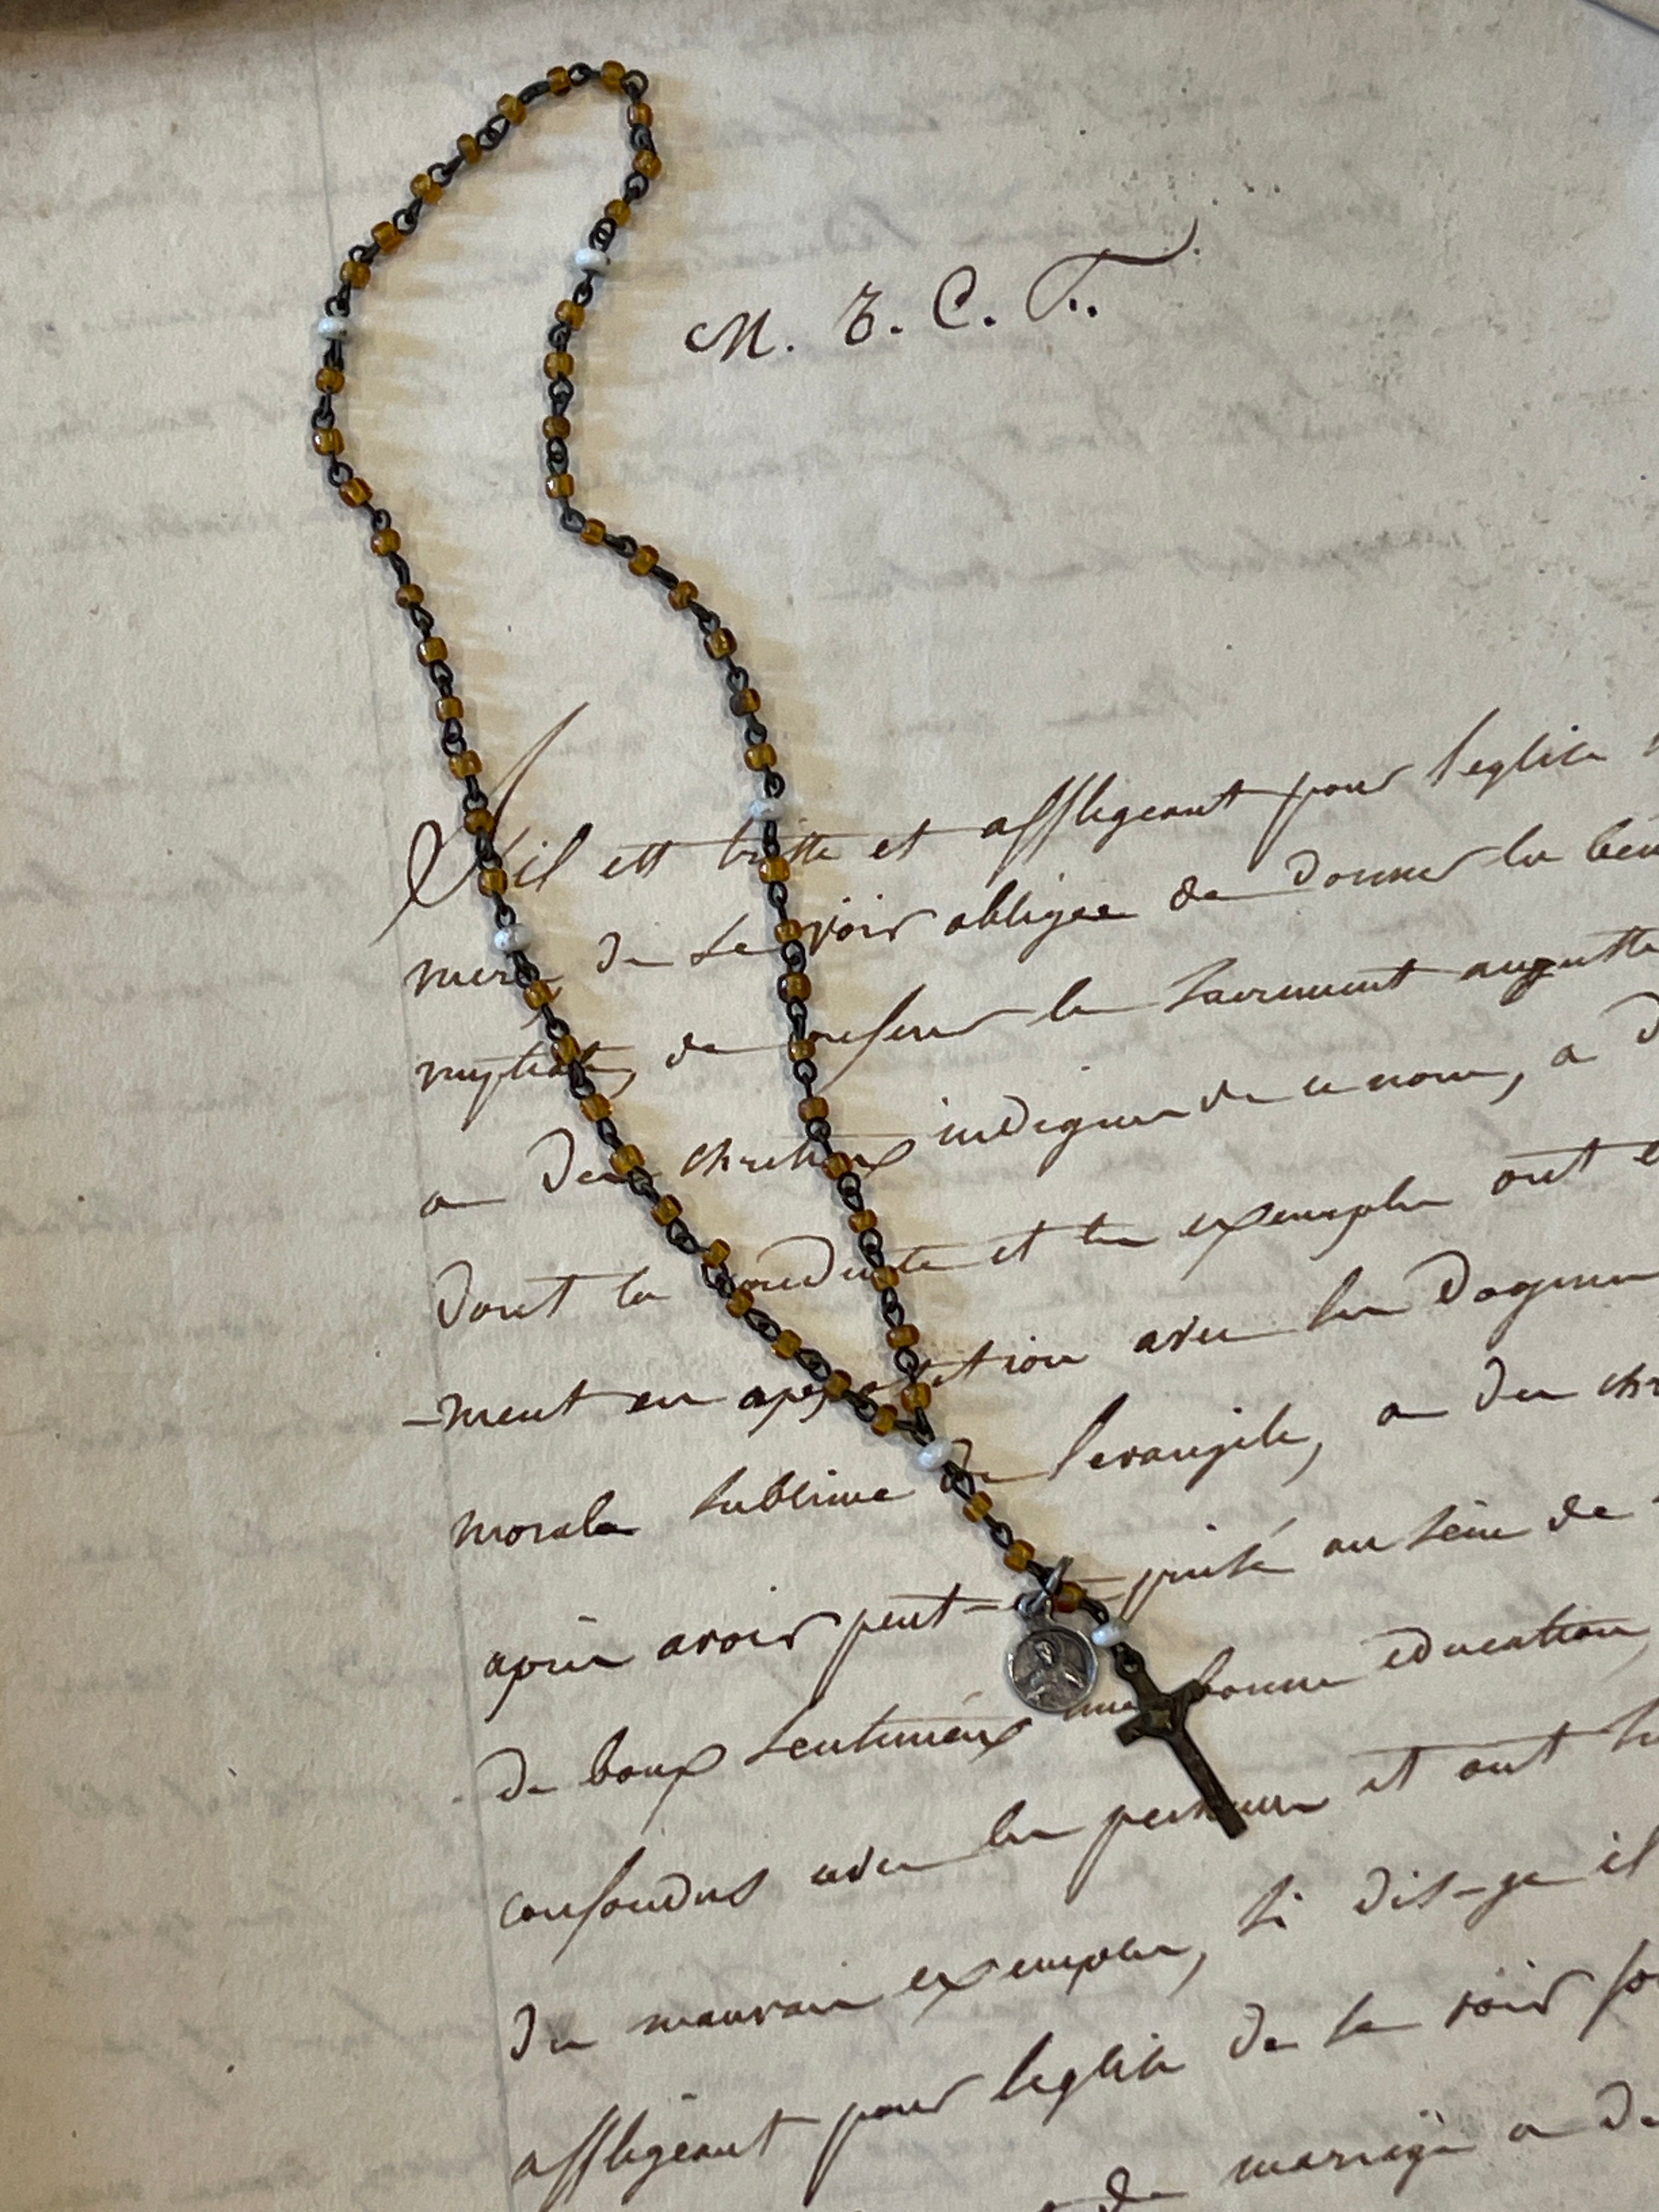 M. T. C. F..
S'il est triste et affligeant pour l'eglise
mere de se voir obligee de donner la
nuptiale, de conferer le sacrement auguste
a des chretiens indignes de ce nom, a
dont la conduite et les exemples ont
-ment en opposition avec les dogmes
morale sublime de l'evangile, a des
apres avoir peut- puisé au sein de
de bons sentimens une bonne education,
confondus avec les pecheurs et ont
de mauvais exemples, si dis-je il
affligeant pour l'eglise de se voir
de mariage a